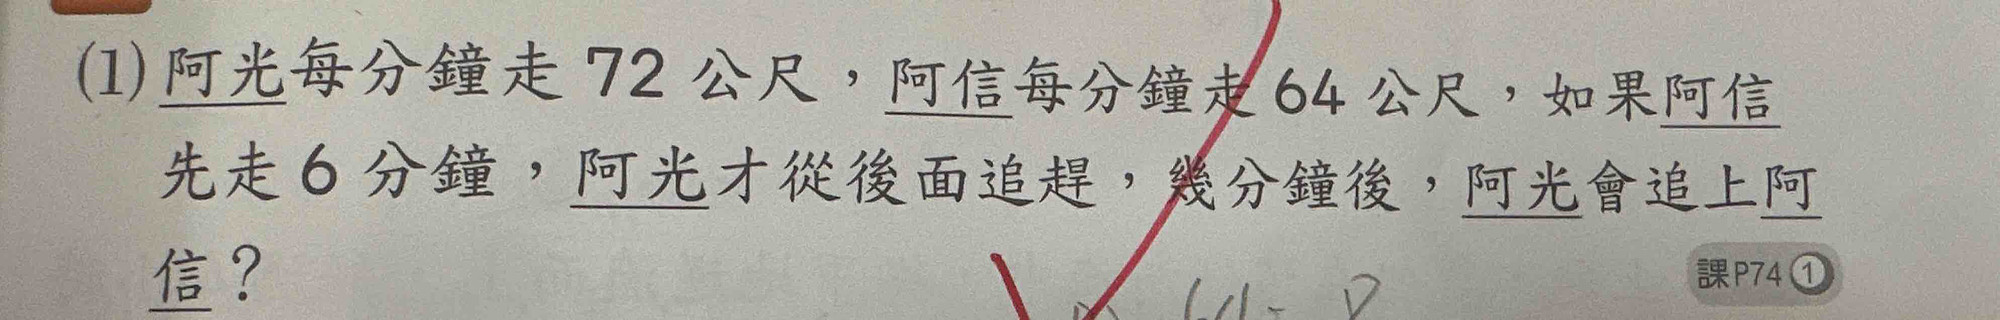 (1)阿光每分鐘走 72 公尺，阿信每分鐘走 64 公尺，如果阿信
先走 6 分鐘，阿光才從後面追趕，幾分鐘後，阿光會追上阿
信？
課P74①